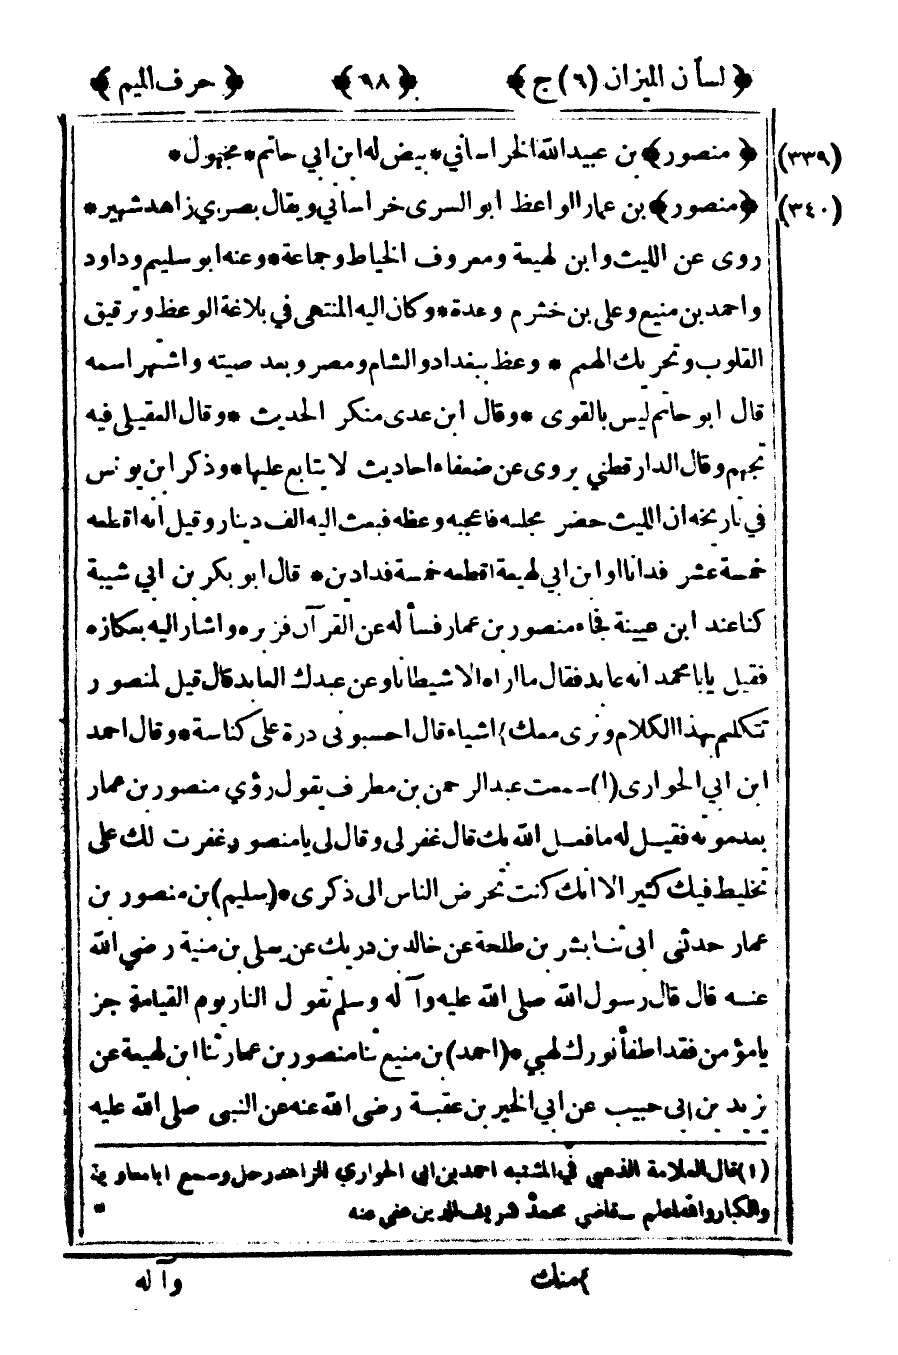 ﴿ لسان الميزان (٦) ج ﴾ ﴿ ٩٨ ﴾ ﴿ حرف الميم ﴾
(٣٣٩) ﴿ منصور ﴾ بن عبيد الله الخراساني * بيض له ابن ابي حاتم * مجهول *
(٣٤٠) ﴿ منصور ﴾ بن عمار الواعظ ابو السرى خراساني ويقال بصري زاهد شهير *
روى عن الليث وابن لهيعة ومعروف الخياط وجماعة * وعنه ابو سليم وداود
واحمد بن منيع وعلى بن خشرم وعدة * وكان اليه المنتهى في بلاغة الوعظ وترقيق
القلوب وتحريك الهمم * وعظ ببغداد والشام ومصر وبعد صيته واشهر اسمه
قال ابو حاتم ليس بالقوى * وقال ابن عدى منكر الحديث * وقال العقيلى فيه
تجهم وقال الدارقطني يروى عن ضعفاء احاديث لا يتابع عليها * وذكر ابن يونس
في تاريخه ان الليث حضر مجلسه فاعجبه وعظه فبعث اليه الف دينار وقيل انه اقطعه
خمسة عشر فدانا او ابن ابي لهيعة اقطعه خمسة فدادين * قال ابو بكر بن ابي شيبة
كنا عند ابن عيينة فجاء منصور بن عمار فسأله عن القرآن فزبره واشار اليه بعكازه
فقيل يابا محمد انه عابد فقال ما اراه الا شيطانا وعن عبدك العابد قال قيل لمنصور
تتكلم بهذا الكلام ونرى معك ٢ اشياء قال احسبونى درة على كناسة * وقال احمد
ابن ابي الحوارى (١) سمعت عبد الرحمن بن مطرف يقول رؤي منصور بن عمار
بعد موته فقيل له ما فعل الله بك قال غفر لى وقال لى يا منصور غفرت لك على
تخليط فيك كثير الا انك كنت تحرض الناس الى ذكرى * (سليم) بن منصور بن
عمار حدثنى ابى ثنا بشر بن طلحة عن خالد بن دريك عن يعلى بن منية رضي الله
عنه قال قال رسول الله صلى الله عليه وآله وسلم تقول النار يوم القيامة جز
يا مؤمن فقد اطفأ نورك لهبي * (احمد) بن منيع ثنا منصور بن عمار ثنا ابن لهيعة عن
يزيد بن ابى حبيب عن ابي الخير بن عقبة رضى الله عنه عن النبى صلى الله عليه
(١) قال العلامة الذهبي في المشتبه احمد بن ابي الحواري الزاهد رحل وسمع ابا معاوية
والكبار والله اعلم _ قاضي محمد شريف الدين عفي عنه *
٢ منك وآله